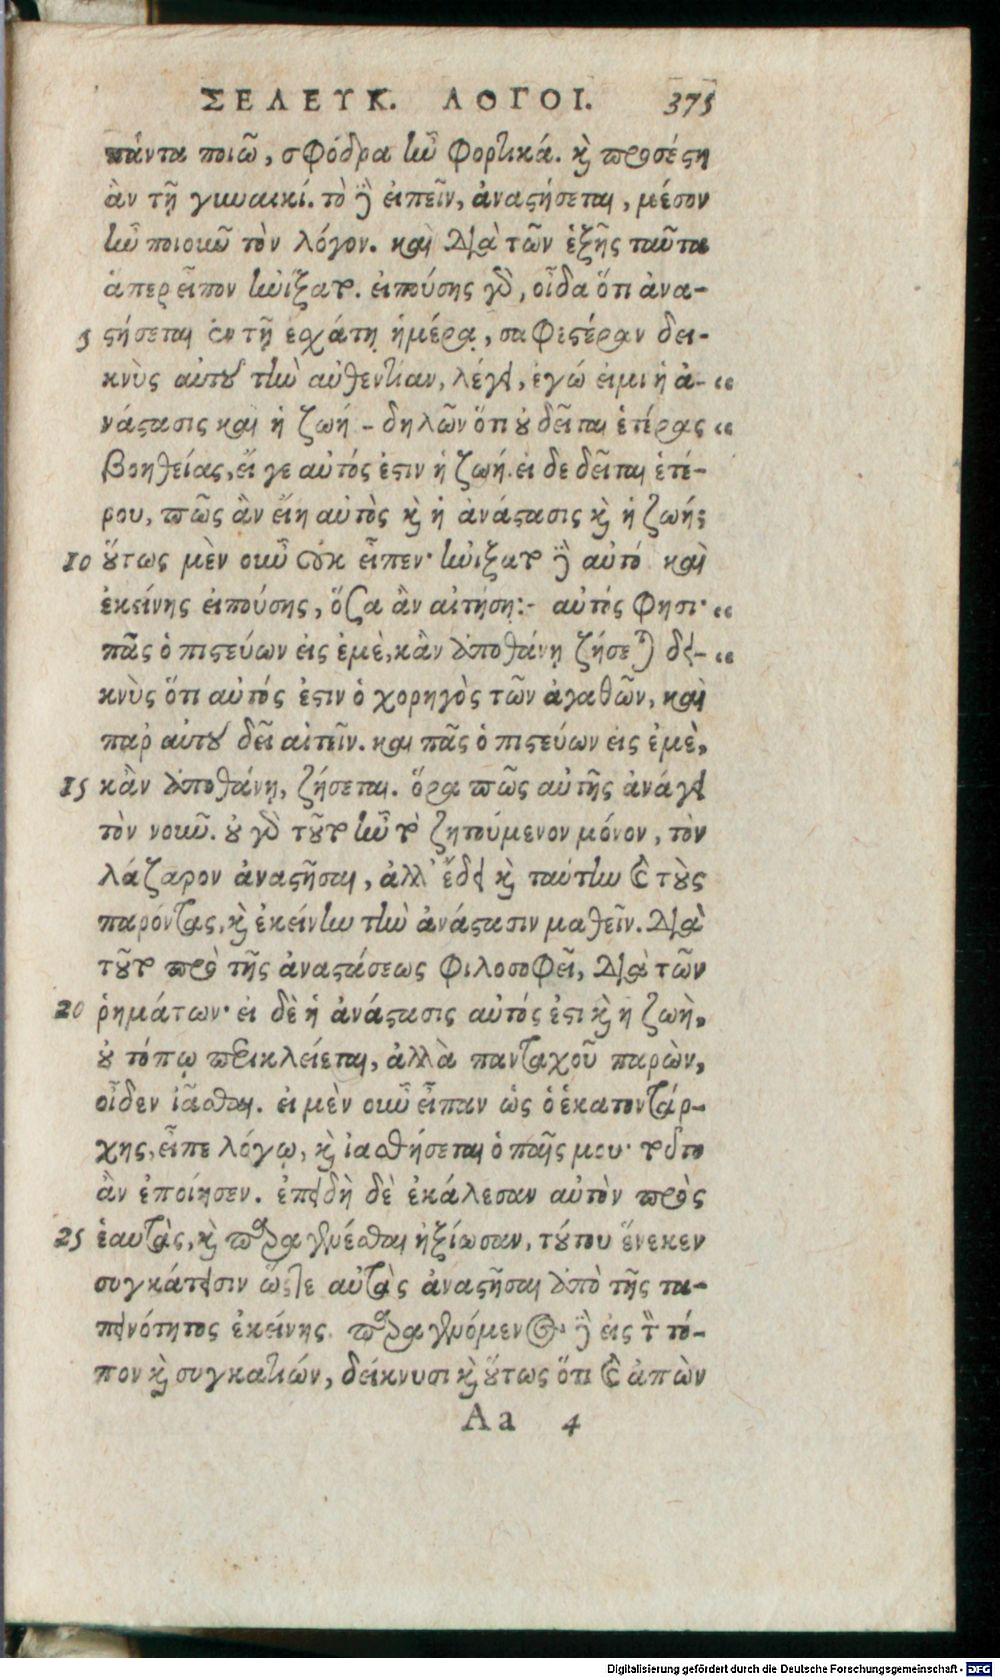 ΣΕΛΕΥΚ. ΛΟΓΟΙ. 375
πάντα ποιῶ, σφόδρα ἦν φορτικά. καὶ προσέστη
ἂν τῇ γυναικί. τὸ γὰρ εἰπεῖν, ἀναστήσεται, μέσον
ἦν ποιοῦν τὸν λόγον. καὶ διὰ τῶν ἑξῆς ταῦτα
ἅπερ εἶπον ᾐνίξατο. εἰπούσης γὰρ, οἶδα ὅτι ἀνα-
5 στήσεται ἐν τῇ ἐσχάτῃ ἡμέρᾳ, σαφεστέραν δει-
κνὺς αὐτοῦ τὴν αὐθεντίαν, λέγει, ἐγώ εἰμι ἡ ἀ- “
νάστασις καὶ ἡ ζωή - δηλῶν ὅτι οὐ δεῖται ἑτέρας “
βοηθείας, εἴ γε αὐτός ἐστιν ἡ ζωή. εἰ δε δεῖται ἑτέ-
ρου, πῶς ἂν εἴη αὐτὸς καὶ ἡ ἀνάστασις καὶ ἡ ζωή;
10 οὕτως μὲν οὖν οὐκ εἶπεν· ᾐνίξατο γὰρ αὐτό καὶ
ἐκείνης εἰπούσης, ὅσα ἂν αἰτήσῃ:- αὐτός φησι· “
πᾶς ὁ πιστεύων εἰς ἐμὲ, κἂν ἀποθάνῃ ζήσεται) δει- “
κνὺς ὅτι αὐτός ἐστιν ὁ χορηγὸς τῶν ἀγαθῶν, καὶ
παρ αὐτοῦ δεῖ αἰτεῖν. καὶ πᾶς ὁ πιστεύων εἰς ἐμὲ,
15 κἂν ἀποθάνῃ, ζήσεται. ὅρα πῶς αὐτῆς ἀνάγει
τὸν νοῦν. οὐ γὰρ τοῦτο ἦν τὸ ζητούμενον μόνον, τὸν
λάζαρον ἀναστῆσαι, ἀλλ' ἔδει καὶ ταύτην καὶ τοὺς
παρόντας, καὶ ἐκείνην τὴν ἀνάστασιν μαθεῖν. διὰ
τοῦτο πρὸ τῆς ἀναστάσεως φιλοσοφεῖ, διὰ τῶν
20 ῥημάτων· εἰ δὲ ἡ ἀνάστασις αὐτός ἐστι καὶ ἡ ζωὴ,
οὐ τόπῳ περικλείεται, ἀλλὰ πανταχοῦ παρὼν,
οἶδεν ἰᾶσθαι. εἰ μὲν οὖν εἶπαν ὡς ὁ ἑκατοντάρ-
χης, εἶπε λόγῳ, καὶ ἰαθήσεται ὁ παῖς μου· τοῦτο
ἂν ἐποίησεν. ἐπειδὴ δὲ ἐκάλεσαν αὐτὸν πρὸς
25 ἑαυτὰς, καὶ παραγενέσθαι ἠξίωσαν, τούτου ἕνεκεν
συγκάτεισιν ὥστε αὐτὰς ἀναστῆσαι ἀπὸ τῆς τα-
πεινότητος ἐκείνης. παραγενόμενος γὰρ εἰς τὸν τό-
πον καὶ συγκατιών, δείκνυσι καὶ οὕτως ὅτι καὶ ἀπὼν
Aa 4
Digitalisierung gefördert durch die Deutsche Forschungsgemeinschaft - DFG